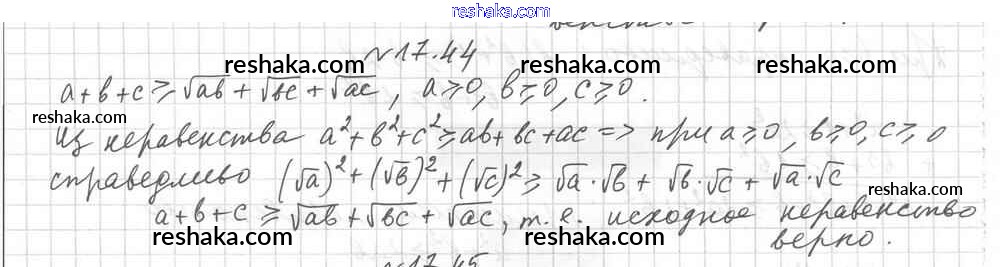 reshaka.com
№17.44
reshaka.com reshaka.com reshaka.com
a+b+c ≥ √ab + √bc + √ac, a≥0, b≥0, c≥0.
reshaka.com
Из неравенства a²+b²+c² ≥ ab+bc+ac => при a≥0, b≥0, c≥0
справедливо (√a)²+(√b)²+(√c)² ≥ √a·√b + √b·√c + √a·√c
reshaka.com
a+b+c ≥ √ab + √bc + √ac, т.е. исходное неравенство
reshaka.com reshaka.com
верно.
№17.45